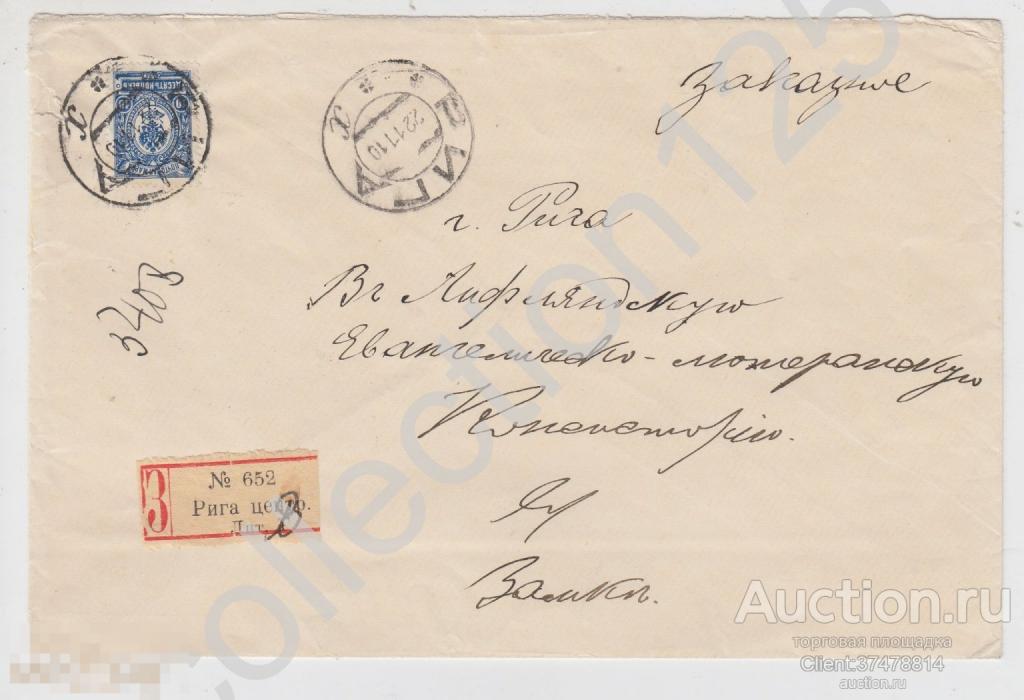 Заказное
ДЕСЯТЬ КОПѢЕКЪ
РИГА
22.11.10
X
X
г. Рига
Въ Лифляндскую
Евангелическо-лютеранскую
Консисторію.
Замкъ.
3408
З
№ 652
Рига центр.
Лит. В
collection 125
Auction.ru
торговая площадка
Client:37478814
auction.ru